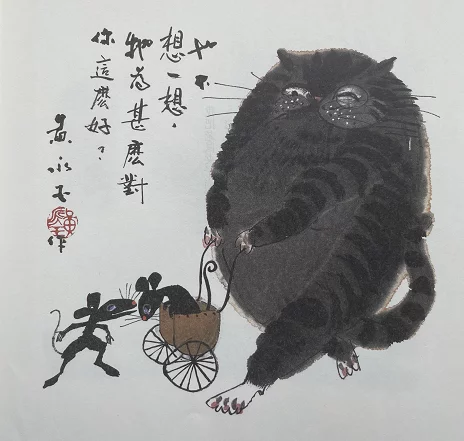 也不
想一想，
牠為甚麼對
你這麼好？
黄永玉
作